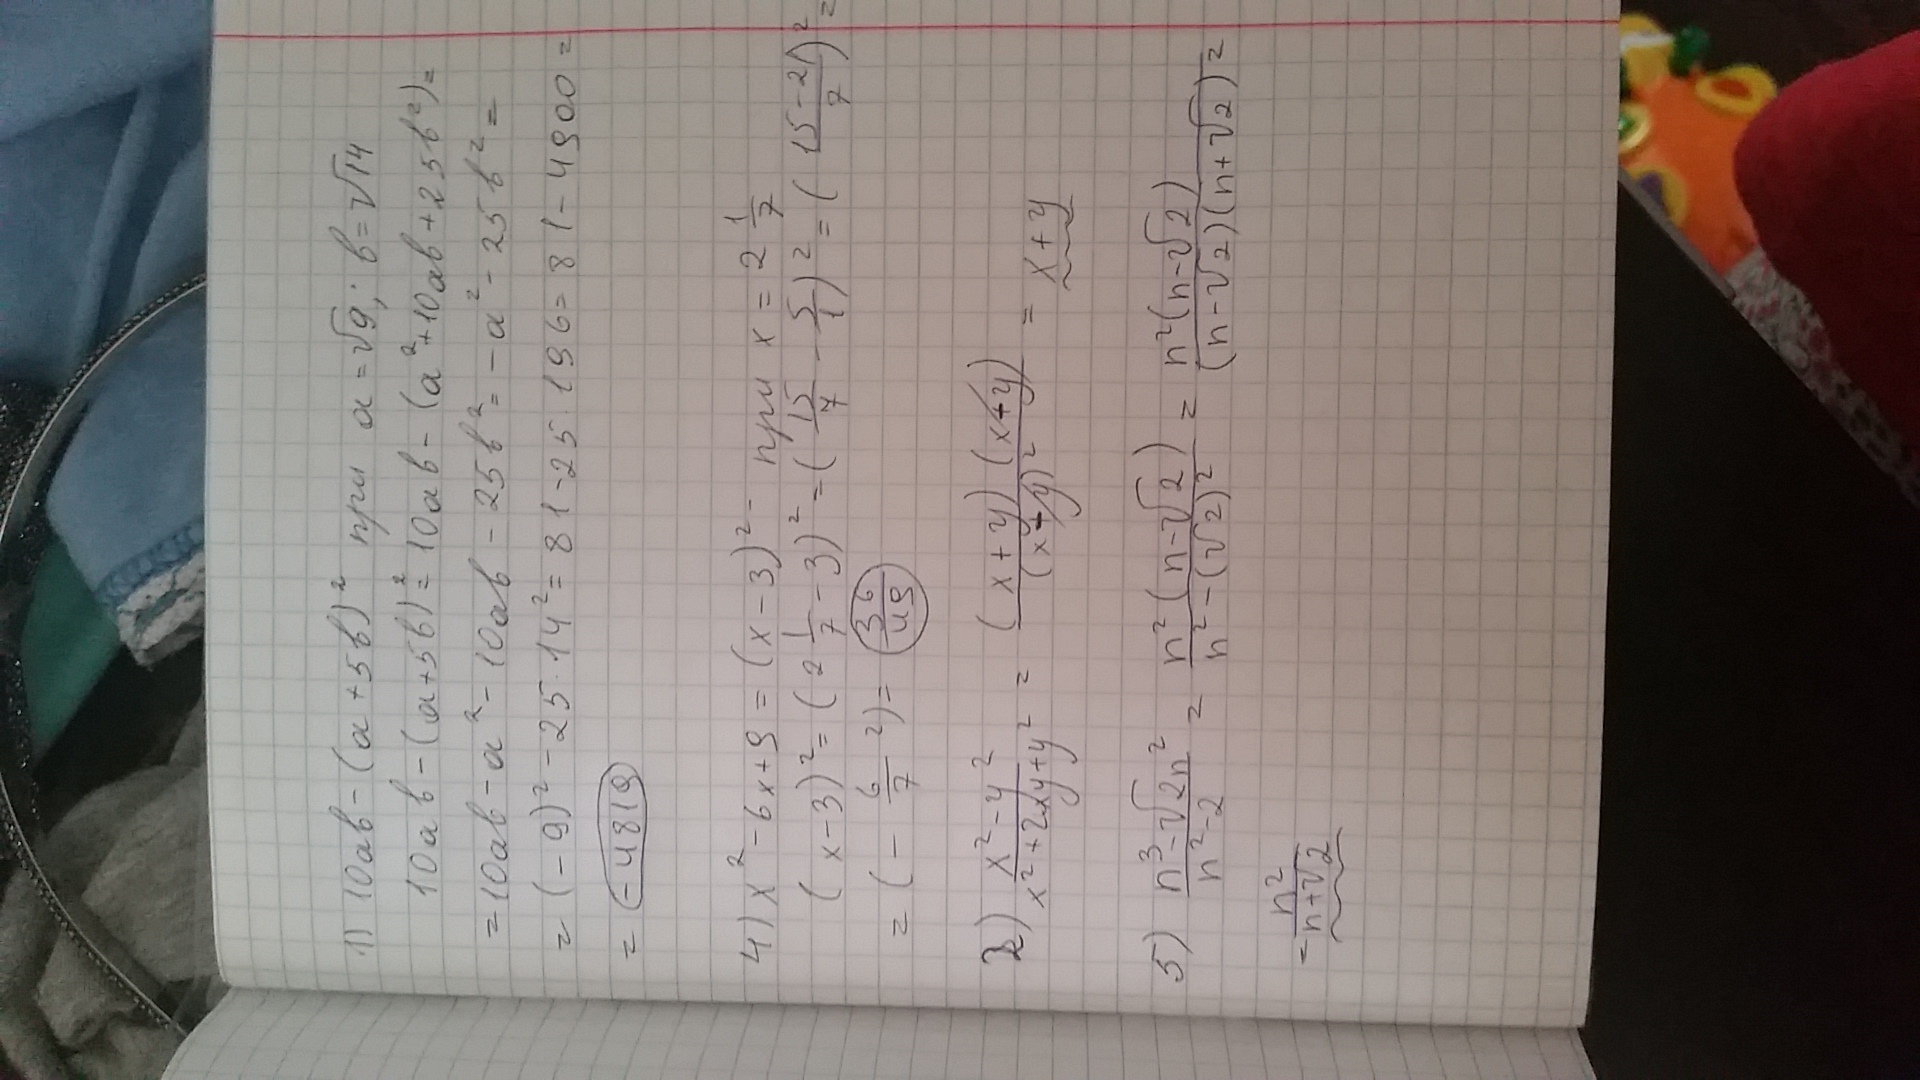 1) 10ав - (а + 5в)² при а = √9; в = √14
10ав - (а+5в)² = 10ав - (а²+10ав+25в²) =
= 10ав - а² - 10ав - 25в² = - а² - 25в² =
= (-9)² - 25 · 14² = 81 - 25 · 196 = 81 - 4900 =
= (-4819)
4) x² - 6x + 9 = (x - 3)² - при x = 2 1/7
(x - 3)² = (2 1/7 - 3)² = (15/7 - 5/1)² = ((15 - 21)/7)² =
= (- 6/7 ²) = 36/49
2) (x² - y²)/(x² + 2xy + y²) = ((x + y)(x + y))/(x + y)² = x + y
5) (n³ - √2n²)/(n² - 2) = n²(n - √2)/(n² - (√2)²) = n²(n - √2)/((n - √2)(n + √2)²
= n²/(n+√2)